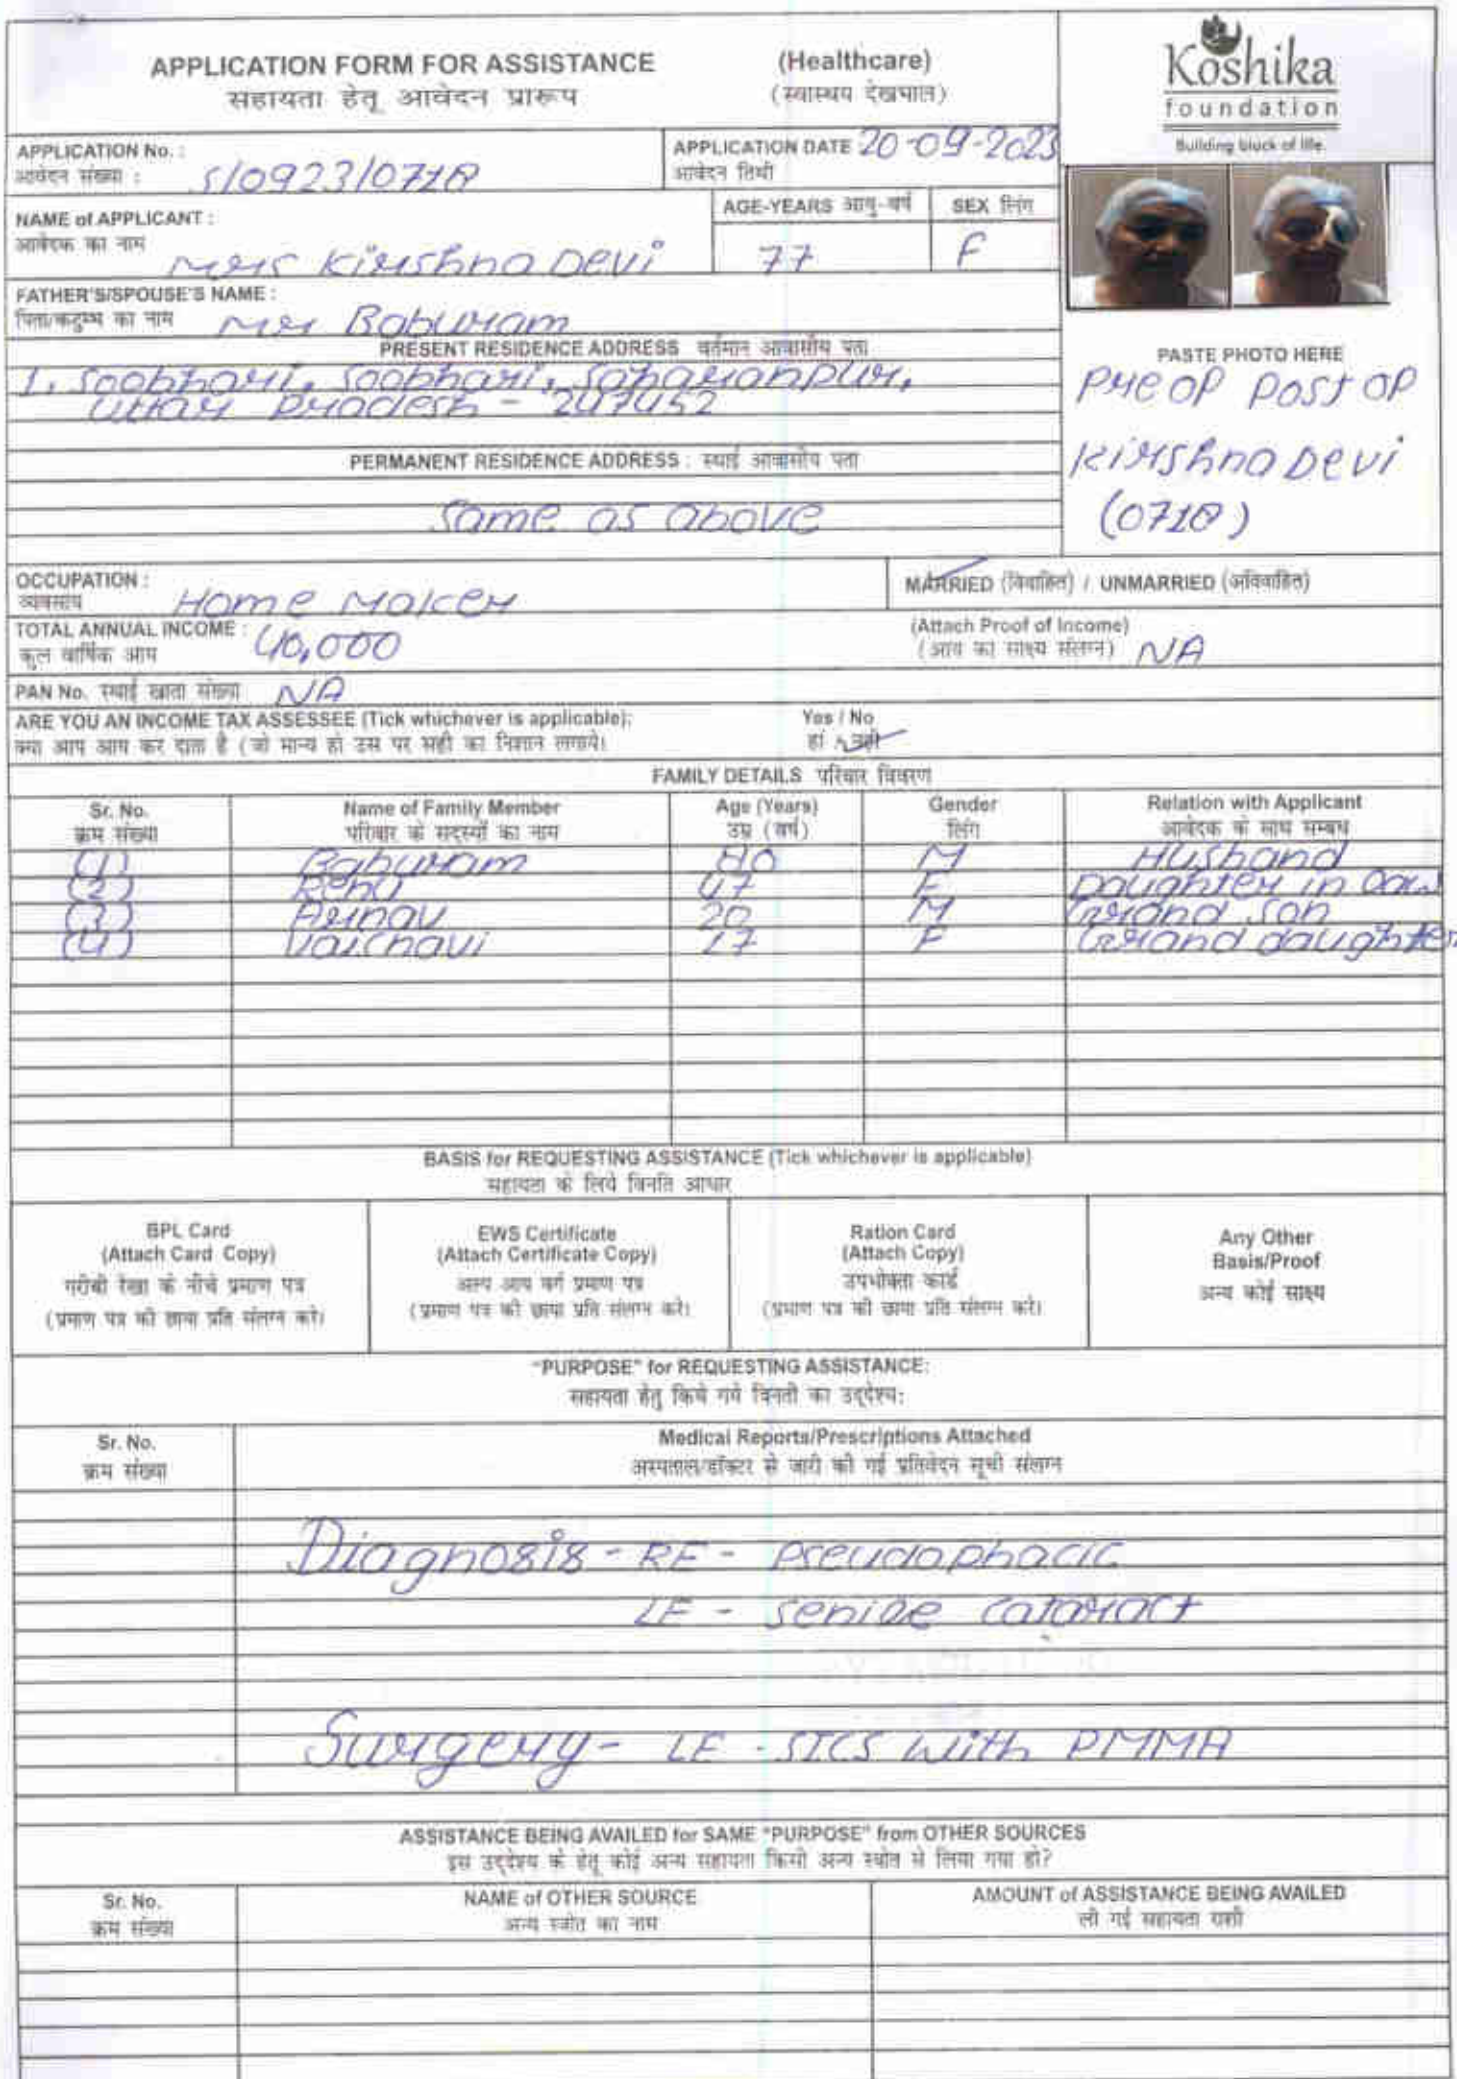 APPLICATION FORM FOR ASSISTANCE (Healthcare)
सहायता हेतू आवेदन प्रारूप (स्वास्थय देखभाल)
Koshika
foundation
Building block of life.
APPLICATION No. :
आवेदन संख्या : S/0923/0718
APPLICATION DATE 20-09-2023
आवेदन तिथी
NAME of APPLICANT :
आवेदक का नाम Mrs Kirshna Devi
AGE-YEARS आयु-वर्ष
77
SEX लिंग
F
FATHER'S/SPOUSE'S NAME :
पिता/कटुम्ब का नाम Mr Baburam
PRESENT RESIDENCE ADDRESS वर्तमान आवासीय पता
1, Soobhari, Soobhari, Saharanpur,
Uttar Pradesh - 247452
PERMANENT RESIDENCE ADDRESS : स्थाई आवासीय पता
Same as above
PASTE PHOTO HERE
Pre op Post op
Kirshna Devi
(0718)
OCCUPATION :
व्यवसाय Home Maker
MARRIED (विवाहित) / UNMARRIED (अविवाहित)
TOTAL ANNUAL INCOME :
कुल वार्षिक आय 40,000
(Attach Proof of Income)
(आय का साक्ष्य संलग्न) NA
PAN No. स्थाई खाता संख्या NA
ARE YOU AN INCOME TAX ASSESSEE (Tick whichever is applicable): Yes / No
क्या आप आय कर दाता है (जो मान्य हो उस पर सही का निशान लगाये। हां / नही
FAMILY DETAILS परिवार विवरण
Sr. No. Name of Family Member Age (Years) Gender Relation with Applicant
क्रम संख्या परिवार के सदस्यों का नाम उम्र (वर्ष) लिंग आवेदक के साथ सम्बध
(1) Baburam 80 M Husband
(2) Renu 47 F Daughter in law
(3) Arnav 20 M Grand son
(4) Vaishnavi 17 F Grand daughter
BASIS for REQUESTING ASSISTANCE (Tick whichever is applicable)
सहायता के लिये विनति आधार
BPL Card
(Attach Card Copy)
गरीबी रेखा के नीचे प्रमाण पत्र
(प्रमाण पत्र की छाया प्रति संलग्न करे।
EWS Certificate
(Attach Certificate Copy)
अल्प आय वर्ग प्रमाण पत्र
(प्रमाण पत्र की छाया प्रति संलग्न करे।
Ration Card
(Attach Copy)
उपभोक्ता कार्ड
(प्रमाण पत्र की छाया प्रति संलग्न करे।
Any Other
Basis/Proof
अन्य कोई साक्ष्य
"PURPOSE" for REQUESTING ASSISTANCE:
सहायता हेतु किये गये विनती का उद्देश्य:
Sr. No. Medical Reports/Prescriptions Attached
क्रम संख्या अस्पताल/डॉक्टर से जारी की गई प्रतिवेदन सूची संलग्न
Diagnosis - RE - Pseudophacic
LE - Senile Cataract
Surgery - LE - SICS with PMMA
ASSISTANCE BEING AVAILED for SAME "PURPOSE" from OTHER SOURCES
इस उद्देश्य के हेतू कोई अन्य सहायता किसी अन्य स्त्रोत से लिया गया हो?
Sr. No. NAME of OTHER SOURCE AMOUNT of ASSISTANCE BEING AVAILED
क्रम संख्या अन्य स्त्रोत का नाम ली गई सहायता राशी